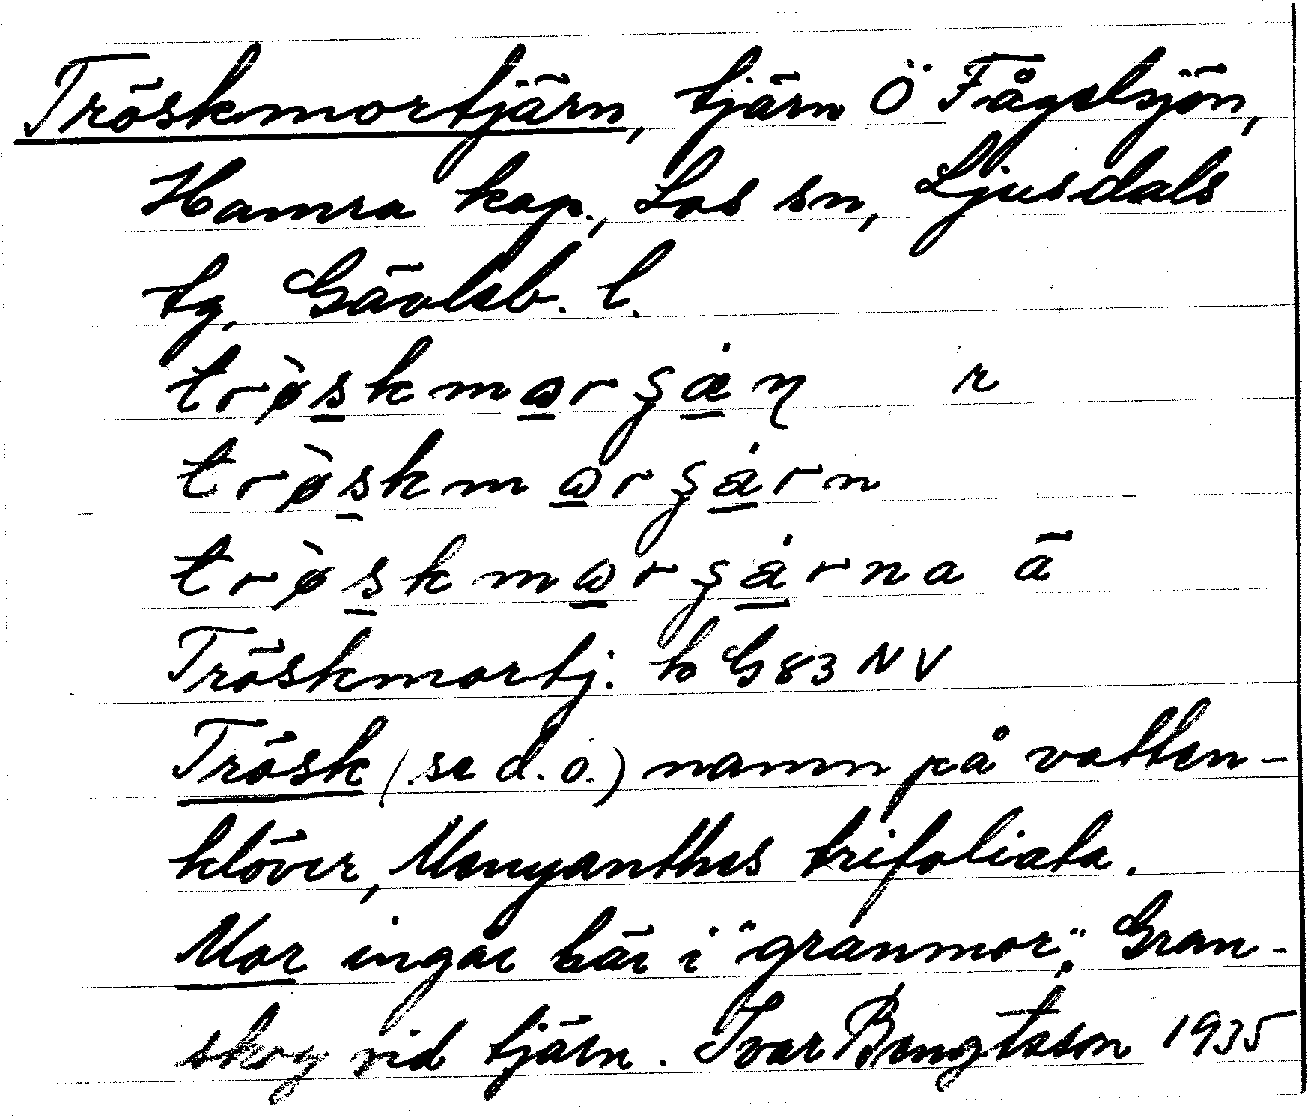 Tröskmortjärn, tjärn Ö Fågelsjön,
Hamra kap., Los sn, Ljusdals
tg, Gävleb. l.
r
ä
Tröskmortj. to G83 NV
Trösk (se d.o.) namn på vatten-
klöver, Menyanthes trifoliata.
Mor ingår här i "granmor". Gran-
skog vid tjärn. Ivar Bengtsson 1935